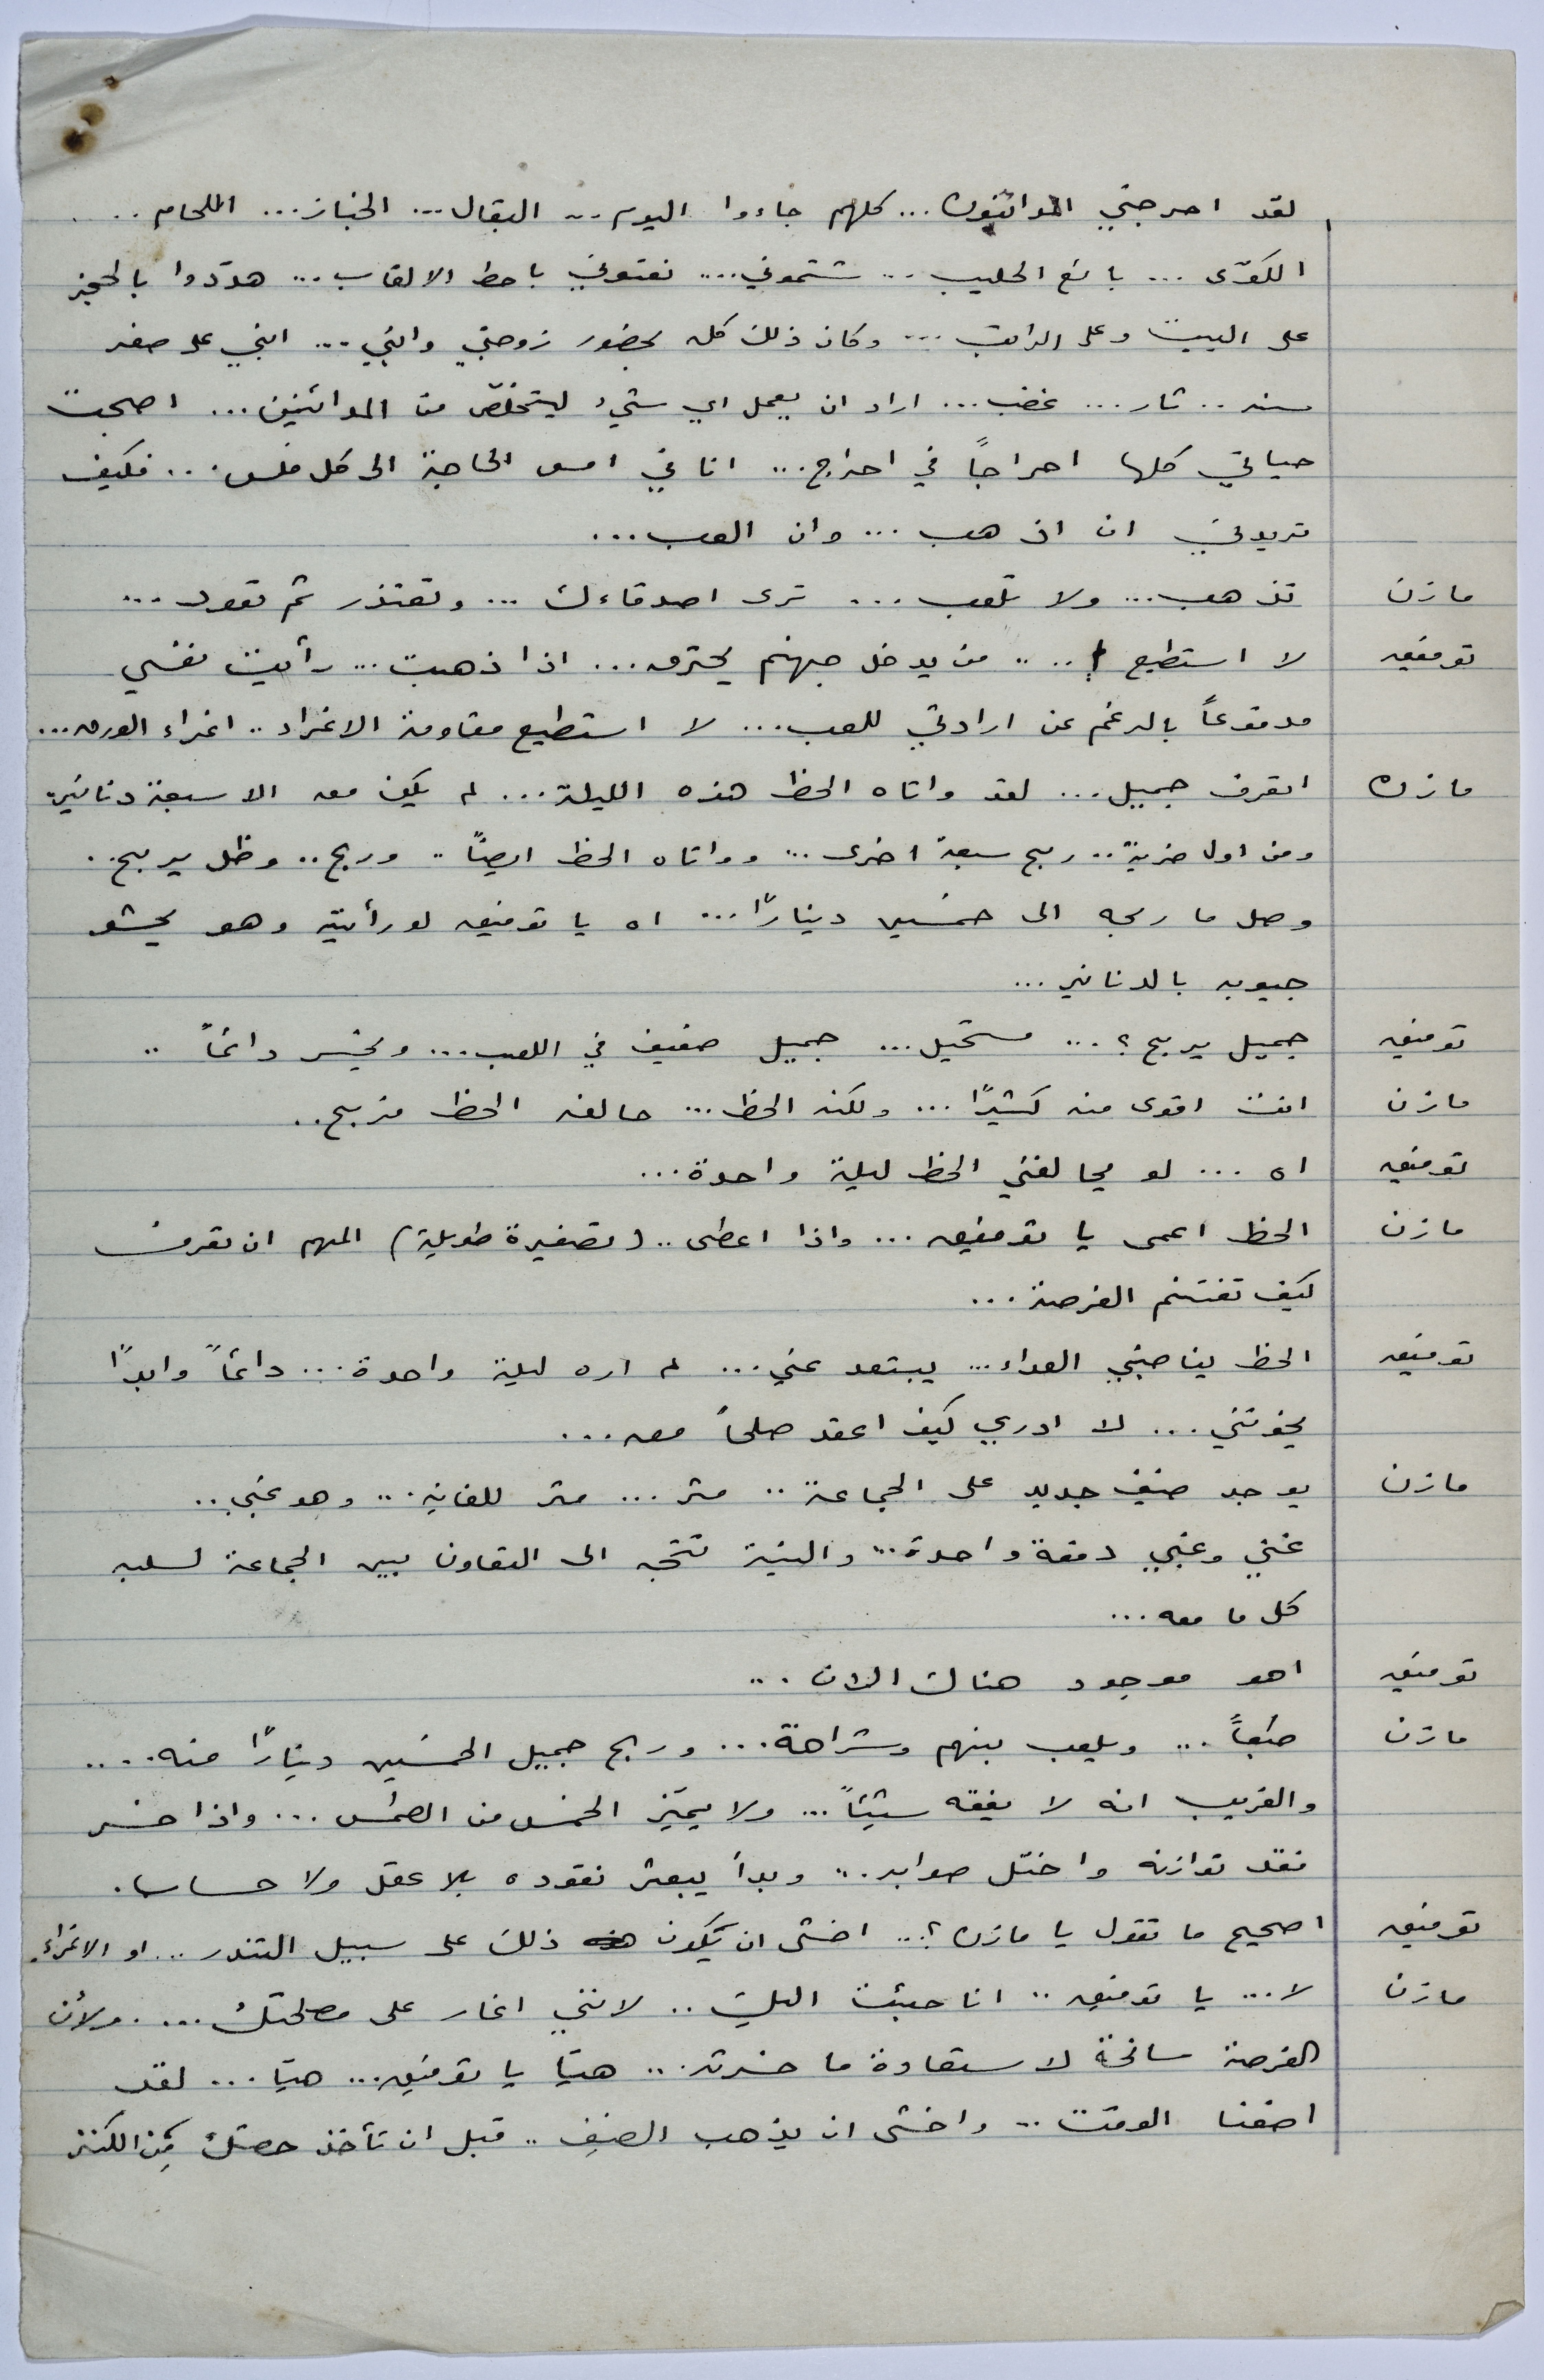 لقد احرجني الدائنون... كلهم جاءوا اليوم... البقال... الخباز... اللحام...
الكوّى... بائع الحليب... شتموني... نعتوني باحط الالقاب... هدّدوا بالحجز
على البيت وعلى الراتب... وكان ذلك كله بحضور زوجتي وابني... ابني على صغر
سنه.. ثار... غضب... اراد ان يعمل اي شيء ليتخلّص من الدائنين... اصبحت
حياتي كلها احراجاً في احراج... انا في امس الحاجة الى كل فلس... فكيف
تريدني ان اذهب... وان العب...
مازن تذهب... ولا تلعب... ترى اصدقاءك... وتعتذر ثم تعود...
توفيق لا استطيع... من يدخل جهنم يحترق... اذا ذهبت... رأيت نفسي
مدفوعاً بالرغم عن ارادتي للعب... لا استطيع مقاومة الاغراء.. اغراء الورق...
مازن اتعرف جميل... لقد واتاه الحظ هذه الليلة... لم يكن معه الا سبعة دنانير..
ومن اول ضربة.. ربح سبعة اخرى... وواتاه الحظ ايضاً.. وربح.. وظل يربح..
وصل ما ربحه الى خمسين ديناراً... اه يا توفيق لو رأيته وهو يحشو
جيوبه بالدنانير...
توفيق جميل يربح؟... مستحيل... جميل ضعيف في اللعب... ويخسر دائماً..
مازن انت اقوى منه كثيراً... ولكنه الحظ... حالفه الحظ فربح..
توفيق اه... لو يحالفني الحظ ليلة واحدة...
مازن الحظ اعمى يا توفيق... واذا اعطى.. (تصفيرة طويلة) المهم ان تعرف
كيف تغتنم الفرصة...
توفيق الحظ يناصبني العداء... يبتعد عني... لم اره ليلة واحدة... دائماً وابداً
يخونني... لا ادري كيف اعقد صلحاً معه...
مازن يوجد ضيف جديد على الجماعة.. مثر... مثر للغاية... وهو غبي..
غني وغبي دفعة واحدة... والنية تتجه الى التعاون بين الجماعة لسلبه
كل ما معه...
توفيق اهو موجود هناك الان...
مازن طبعاً... ويلعب بنهم وشراهة... وربح جميل الخمسين ديناراً منه....
والغريب انه لا يفقه شيئاً... ولا يميّز الخمس من الطمس... واذا خسر
فقد توازنه واختل صوابه... وبدأ يبعثر نقوده بلا عقل ولا حساب.
توفيق اصحيح ما تقول يا مازن؟... اخشى ان يكون ذلك على سبيل التندر... او الاغراء.
مازن لا... يا توفيق.. انا جئت اليك.. لانني اغار على مصلحتك.... ولأن
الفرصة سانحة لاستعادة ما خسرته... هيّا يا توفيق... هيّا... لقد
اضعنا الوقت... واخشى ان يذهب الضيف.. قبل ان تأخذ حصتك من الكنز